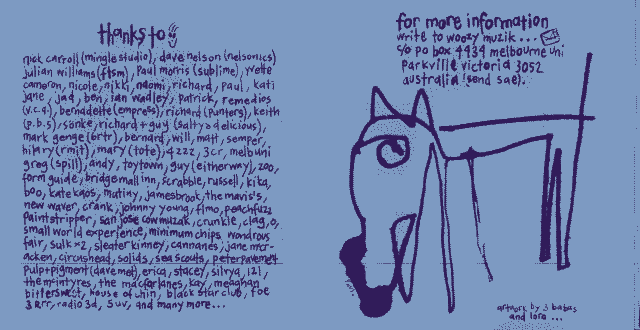 thanks to
nick carroll (mingle studio), dave nelson (nelsonics)
julian williams (ftsm), Paul morris (sublime), yvette
cameron, nicole, nikki, naomi, richard, paul, kati
jane, jad, ben, ian wadley, patrick, remedios
(v.c.a), bernadette (empress), richard (punters), keith
(p.b.s), sonke, richard + guy (salty & delicious),
mark genge (brtr), bernard, will, matt, semper,
hilary (rmit), mary (tote), 4zzz, 3cr, melb uni
greg (spill), andy, toytown, guy (eitherway), zoo,
form guide, bridge mall inn, scrabble, russell, kika,
boo, kate kaos, matiny, jamesbrook, the mavis's,
new waver, crank, johnny young, flmo, peachfuzz
Paintstripper, san jose cowmuzak, crunkle, clag, o,
small world experience, minimum chips, wondrous
fair, sulk x2, sleater kinney, cannanes, jane mcr-
acken, circushead, solids, sea scouts, peter pavement
Pulp + pigment (dave mof), erica, stacey, silvya, 121,
the mcintyres, the macfarlanes, kay, meaghan
bittersweet, house of chin, black star club, foe
3 rrr, radio 3d, suv, and many more...
for more information
write to woozy muzik...
c/o po box 4434 melbourne uni
Parkville victoria 3052
australia (send sae).
artwork by 3 babas
and lora...